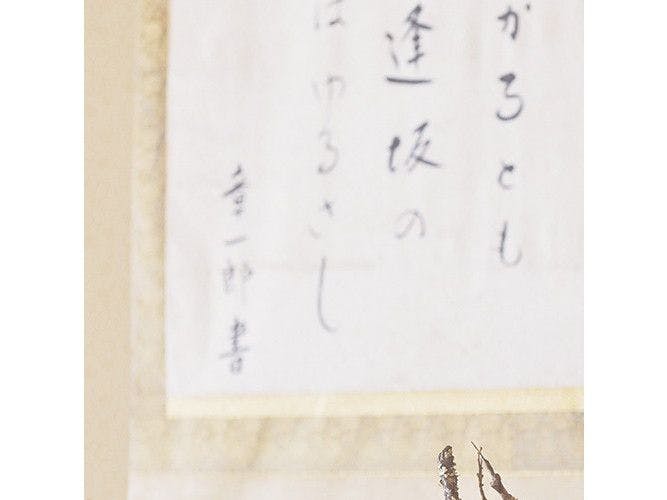 かるとも
逢坂の
はゆるさし
幸一郎書